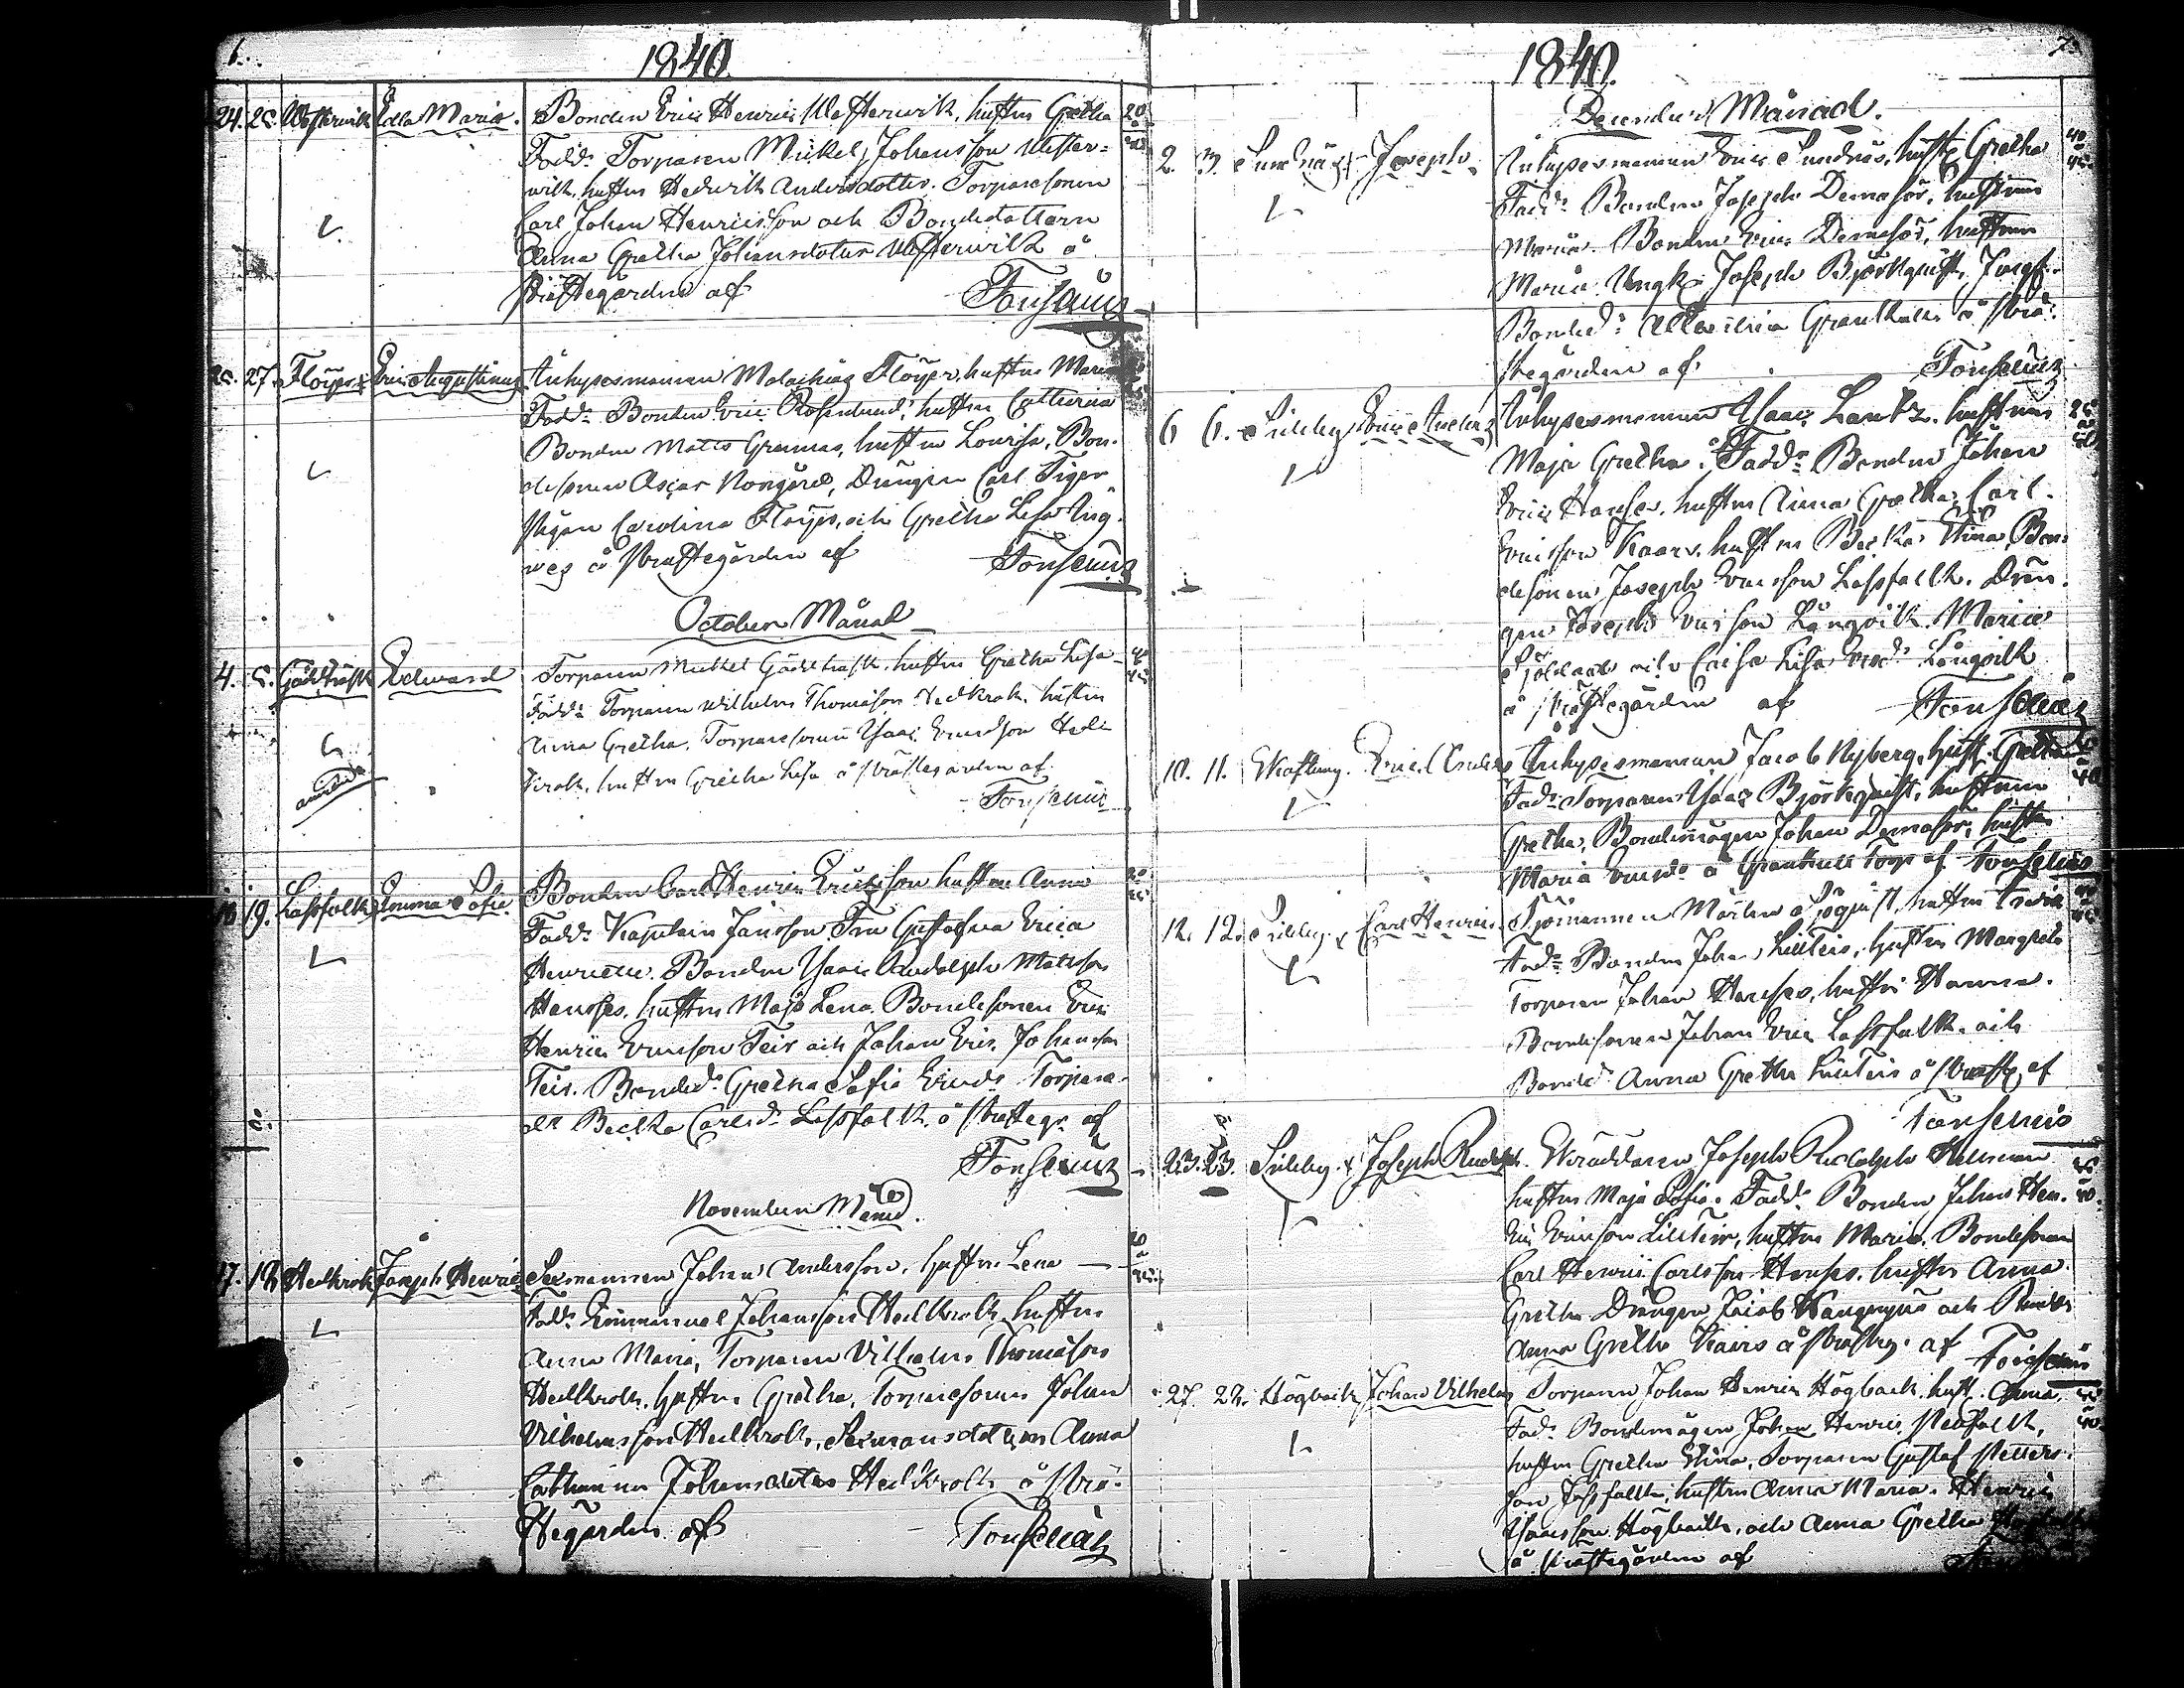 6.
1840.
24. 25. Westervik Edla Maria. Bonden Eric Henric Westervik, hustrun Gretha 20
Fadd: Torparen Mickel Johansson Wester-
wik, hustrun Hedvik Andersdotter. Torparesonen
Carl Johan Henricsson och Bondedottern
Anna Gretha Johansdotter Westervik å
Prästegården af Fonselius
25. 27. Flöjes Eric Augustinus Inhysesmannen Malachias Flöjer, hustrun Maria
Fadd: Bonden Eric Rosenlund, hustrun Catharina
Bonden Matts Grannas, hustrun Lovisa, Bon-
desonen Oscar Norrgård, Drängen Carl Tiger
Pigan Carolina Flöjes, och Gretha Lisa
å Prästegården af Fonselius
October Månad
4. 5. Gäddträsk Edward Torparen Mickel Gäddträsk, hustrun Gretha Lisa
Fadd: Torparen Wilhelm Thomasson Hedkrok, hustrun
Anna Gretha. Torparesonen Isaac Ericsson Hed-
krok, hustrun Gretha Lisa å Prästegården af
Fonselius
18 19. Lassfolk Emma Sofia. Bonden Carl Henric Ericsson hustrun Anna
Fadd: Kapitain Jansson, Fru Gustafva Erica
Henriette. Bonden Isaac Rudolph Mattsson
Hansses, hustrun Maja Lena. Bondesonen Eric
Henric Ericsson Teir och Johan Eric Johansson
Teir. Bonded: Gretha Sofia Ericsd: Torpare-
dr Becka Carlsd: Lassfolk, å Prästeg: af
Fonselius
November Månad.
17. 18 Hedkrok Joseph Henric Sexmannen Johan Andersson, hustrun Lena
Fadd: Emmanuel Johansson Hedkrok, hustrun
Anna Maria, Torparen Vilhelm Thomasson
Hedkrok, hustrun Gretha, Torparesonen Johan
Vilhelmsson Hedkrok, Sexmansdottern Anna
Catharina Johansdotter Hedkrok å Prä-
stegården af Fonselius
7.
1840.
December Månad.
2. 3. Sundnäs Joseph. Inhysesmannen Eric Sundnäs, hustr: Gretha 40
Fadd: Bonden Joseph Demasör, hustrun
Maria. Bonden Eric Demasör, hustrun
Maria. Yngk: Joseph Björkqvist, Jungf:
Bonded: Albertina Grankulla å Prä-
stegården af Fonselius
6 6. Sideby Eric Anders Inhysesmannen Isaac Lantz. hustrun 25
Maja Gretha. Fadd: Bonden Johan
Eric Hanses, hustrun Anna Gretha, Carl
Ericsson Kaars, hustrun Becka Stina, Bon-
desonen Joseph Ericsson Lassfolk. Drän-
gen Joseph Ericsson Långvik. Maria
och Caisa Lisa Ericsd: Långvik
å Prästegården af Fonselius
10. 11. Skaftung. Eric Anders Inhysesmannen Jacob Nyberg, hust: Gretha
Fad: Torparen Isaac Björkqvist, hustrun
Gretha, Bondemågen Johan Demasör, hustrun
Maria Ericsd: å Grankull Torp af Fonselius
12. 12. Sideby Carl Henric Sjömannen Mårten Sjöqvist, hustrun
Fad: Bonden Johan Lillteir, hustrun Margreta
Torparen Johan Hansses, hustrun Hanna.
Bondesonen Johan Eric Lassfolk, och
Bonded: Anna Gretha Lillteir å Prästeg: af
Fonselius
23. 23. Sideby. Joseph Rudolph. Skräddaren Joseph Rudolph Hellman
hustrun Maja Sofia. Fadd: Bonden Johan Hen-
ric Ericsson Lillteir, hustrun Maria. Bondesonen
Carl Henric Carlsson Hanses, hustrun Anna
Gretha Drängen Jacob och
Anna Gretha Kaars å Prästeg: af Fonselius
27. 28. Högback Johan Vilhelm Torparen Johan Henric Högback, hust: Anna,
Fad: Bondemågen Johan Henric
hustrun Gretha Stina, Torparen Gustaf Petters-
son Lassfolk, hustrun Anna Maria. Henric
Isacsson Högback, och Anna Gretha
å Prästegården af